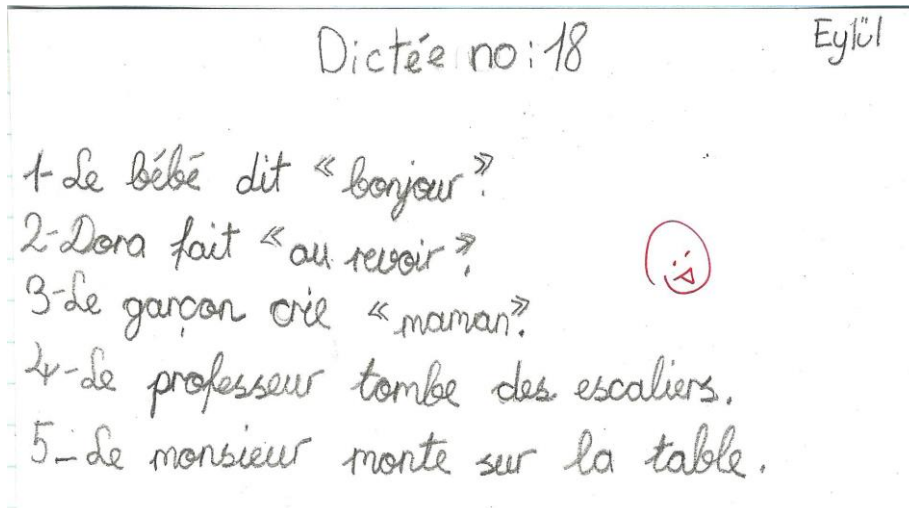 Eylül
Dictée no:18
1-Le bébé dit « bonjour ».
2-Dora fait « au revoir ».
3-Le garçon crie « maman ».
4-Le professeur tombe des escaliers.
5-Le monsieur monte sur la table.